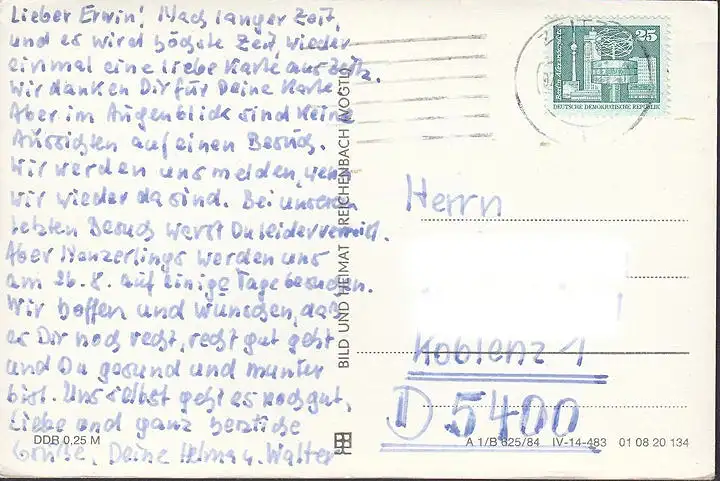 Lieber Erwin! Nach langer Zeit,
und es wird höchste Zeit, wieder
einmal eine liebe Karte aus Zeitz.
Wir danken Dir für Deine Karte.
Aber im Augenblick sind keine
Aussichten auf einen Besuch.
Wir werden uns melden, wenn
wir wieder da sind. Bei unserem
letzten Besuch warst Du leider verreist.
Aber werden uns
am 26.8. auf einige Tage besuchen.
Wir hoffen und wünschen, daß
es Dir noch recht, recht gut geht
und Du gesund und munter
bist. Uns selbst geht es noch gut,
Liebe und ganz herzliche
Grüße, Deine Helma u. Walter
DDR 0,25 M
BILD UND HEIMAT REICHENBACH (VOGTL)
25
DEUTSCHE DEMOKRATISCHE REPUBLIK
Herrn
Koblenz 1
D 5400
A 1/B 625/84 IV-14-483 01 08 20 134